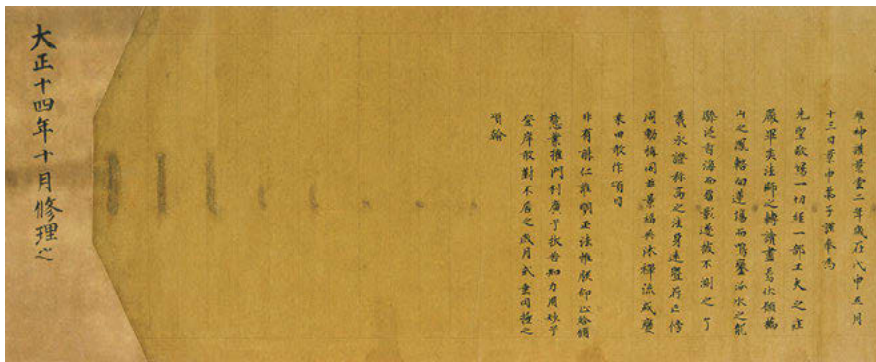 維神護景雲二年歲在戊申五月
十三日景申弟子謹奉為
先聖敬寫一切經一部工夫之莊
嚴畢矣法師之轉讀盡焉伏願橋
山之鳳輅向蓮場而鳴鑾汾水之龍
驂泛香海而留影遂披不測之了
義永證弥高之法身遠曁存亡傍
周動植同茲景福共沐禪流或變
桑田敢作頌曰
非有能仁誰明正法惟朕仰止給脩
慧業權門利廣兮拔苦知力用妙兮
登岸敢對不居之歲月式垂罔極之
頌翰
大正十四年十月修理之